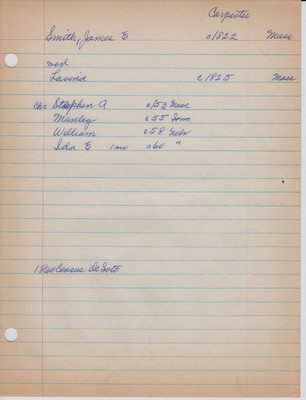 Carpenter
Smith, James E c1822 Mass
med
Lavina c1825 Mass
Chr Stephen A c/53 Mass
Manley c55 Iowa
William c58 Nebr
Ida E 1mo c60 "
1860 Census DeSoto